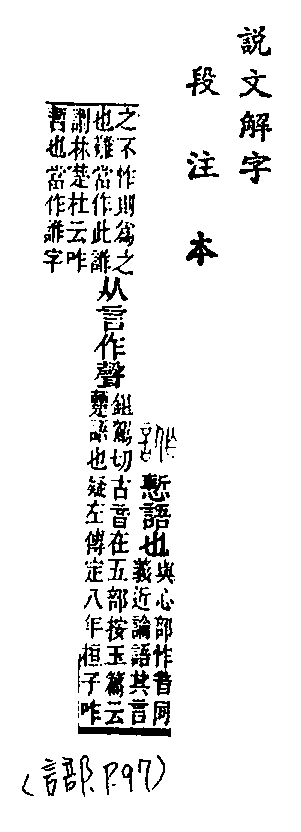 説文解字
段注本
慙語也
與心部怍音同
義近論語其言
之不怍則爲之
也難當作此䛫
从言作聲
鉏駕切古音在五部按玉篇云
語也疑左傳定八年桓子咋
謂林楚杜云咋
暫也當作䛫字
(言部.P.97)